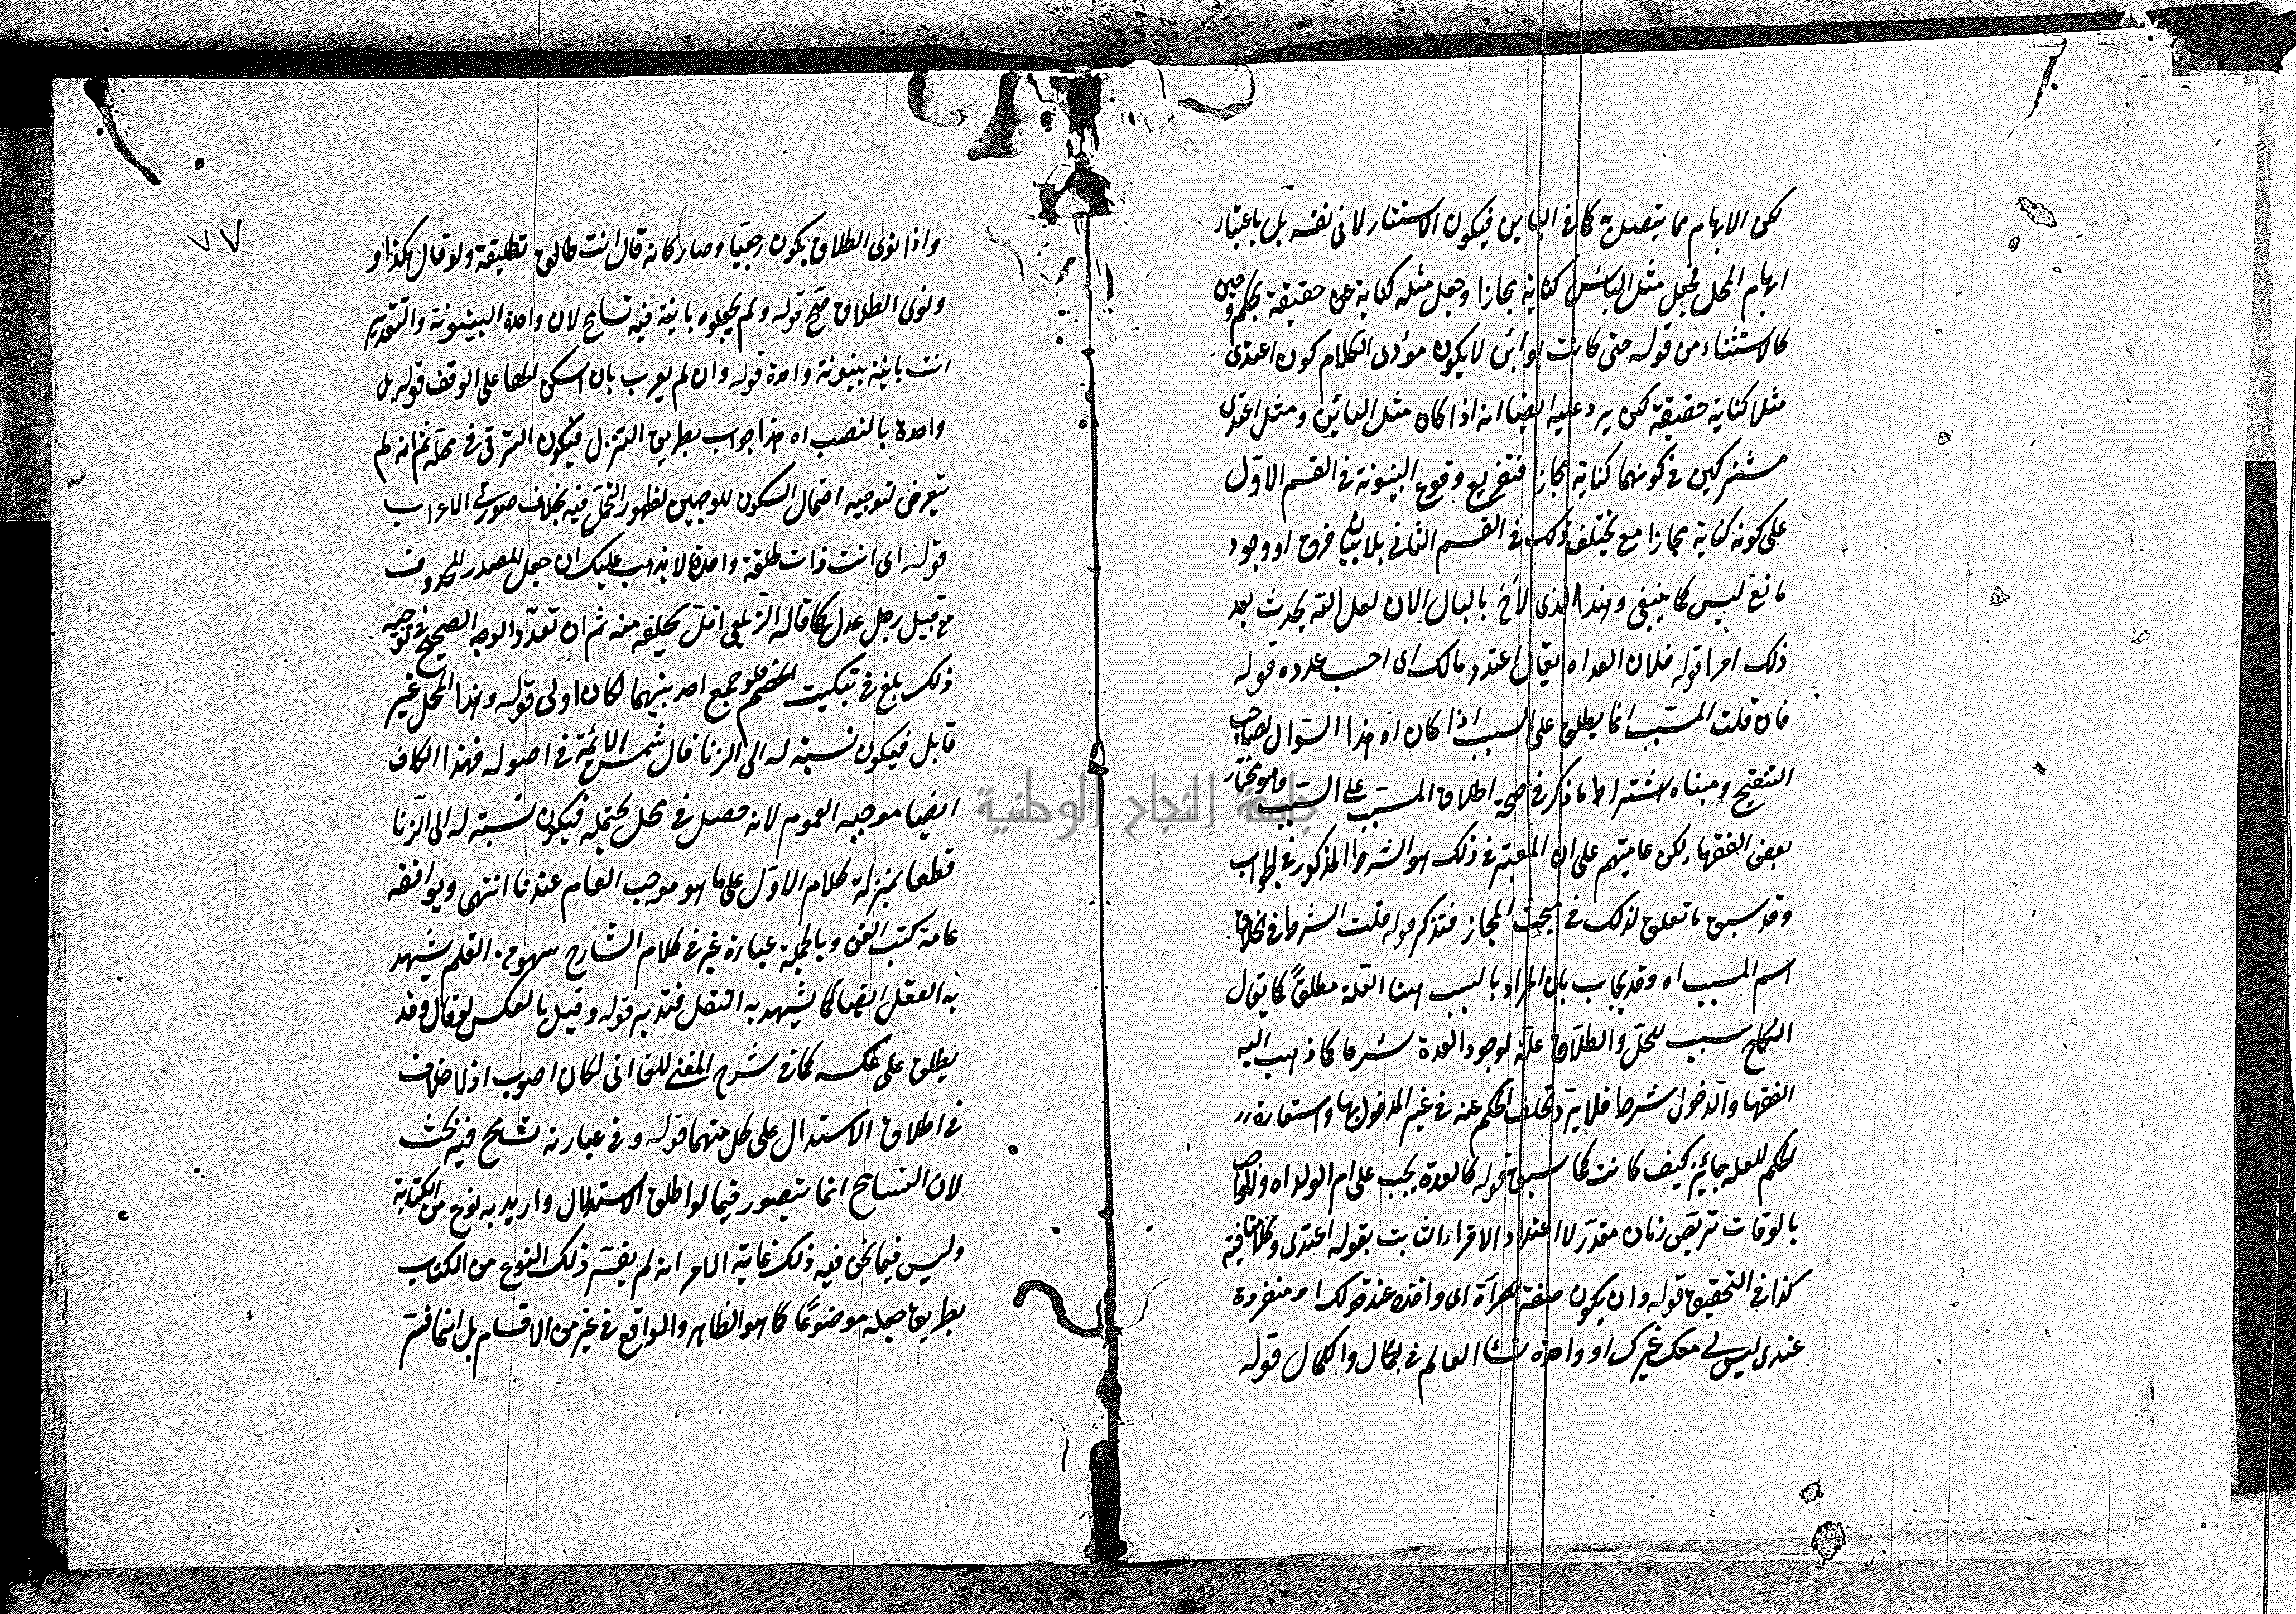 لكن الابهام مما يتصل به كما في البائن فيكون الاستتار لا في نفسه بل باعتبار
ابهام المحل فجعل مثل البائن كناية مجازا وجعل مثله كناية عن حقيقة بحكم وحين
كالاستثناء من قوله حتى كانت بوائن لا يكون مؤدى الكلام كون اعتدى
مثلا كناية حقيقة لكن يرد عليه ايضا انه اذا كان مثل البائن ومثل اعتدى
مشتركين في كونهما كناية مجازا فتفريع وقوع البينونة في القسم الاول
على كونه كناية مجازا مع تخلف ذلك في القسم الثاني بلا بيان فرق او وجود
مانع ليس كما ينبغي وهذا الذي لاح بالبال الان لعل الله يحدث بعد
ذلك امرا قوله فلان العد اه يقال اعتدد مالك اى احسب عدده قوله
فان قلت المسبب انما يطلق على السبب اذا كان اه هذا السؤال لصاحب
التنقيح ومبناه اشتراط ما ذكر في صحة اطلاق المسبب على السبب وهو مختار
بعض الفقهاء لكن عامتهم على ان المعتبر في ذلك هو الشرط المذكور في الجواب
وقد سبق ما تعلق لذلك في مبحث المجاز فتذكر قوله قلت الشرط في اطلاق
اسم المسبب اه وقد يجاب بان المراد بالسبب ههنا العلة مطلقا كما يقال
النكاح سبب للحل والطلاق علة لوجود العدة شرعا كما ذهب اليه
الفقها والدخول شرط فلا يرد تخلف الحكم عنه في غير المدخول بها واستعارة
الحكم للعلة جائز كيف كانت كما سبق قوله كالعدة يجب على ام الولد اه والواجب
بالوفات تربص زمان مقدر لا اعتداد الاقراء الثابت بقوله اعتدى وكلامنا فيه
كذا في التحقيق قوله وان يكون صفة للمرأة اى واحدة عند قومك او منفردة
عندى ليس لي معك غيرك او واحدة نساء العالم في الجمال والكمال قوله
٧٧
واذا نوى الطلاق يكون رجعيا وصار كانه قال انت طالق تطليقة ولو قال هكذا و
ونوى الطلاق صح قوله ولم يجعلوه باينة فيه تسامح لان واحدة البينونة والتقدير
انت باينة بينونة واحدة قوله وان لم يعرب بان اسكن الهاء على الوقف قوله بل
واحدة بالنصب اه هذا جواب بطريق التنزل فيكون الترقى في محله ثم انه لم
يتعرض لتوجيه احتمال السكون للوجهين لظهور التحمل فيه بخلاف صورتى الاعراب
قوله اى انت ذات طلقة واحدة لا يذهب عليك ان جعل المصدر المحذوف
من قبيل رجل عدل كما قاله الزيلعى اقل تكلفه منه ثم ان تعدد الوجه الصحيح في توجيه
ذلك بلغ في تبكيت الخصم فلو جمع احد بينهما لكان اولى قوله وهذا المحل غير
قابل فيكون نسبة له الى الزنا قال شمس الائمة في اصوله فهذا الكاف
ايضا موجبه العموم لانه حصل في محل يحتمله فيكون نسبته له الى الزنا
قطعا بمنزلة كلام الاول على ما هو موجب العام عندنا انتهى ويوافقه
عامة كتب الفن وبالجملة عبارة غير في كلام الشارح سهو من القلم يشهد
به العقل ايضا كما يشهد به النقل فتدبر قوله وقيل بالعكس لو قال وقد
يطلق على عكسه كما في شرح المغنى للقاانى لكان اصوب اذ لا خلاف
في اطلاق الاستدلال على كل منهما قوله وفي عبارته تسامح فيه بحث
لان التسامح انما يتصور فيما لو اطلق الاستدلال واريد به نوع من الكتابة
وليس فيما نحن فيه ذلك غاية الامر انه لم يفسر ذلك النوع من الكتاب
بطريق جعله موضوعا كما هو الظاهر والواقع في غير من الاقسام بل انما فسر
جامعة النجاح الوطنية